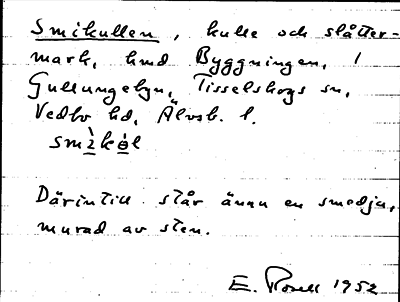 Smikullen, kulle och slåtter-
mark, hmd Byggningen, 1
Gullungebyn, Tisselskogs sn,
Vedbo hd, Älvsb. l.
smìkəl
Därintill står ännu en smedja,
murad av sten.
E. Rosell 1952